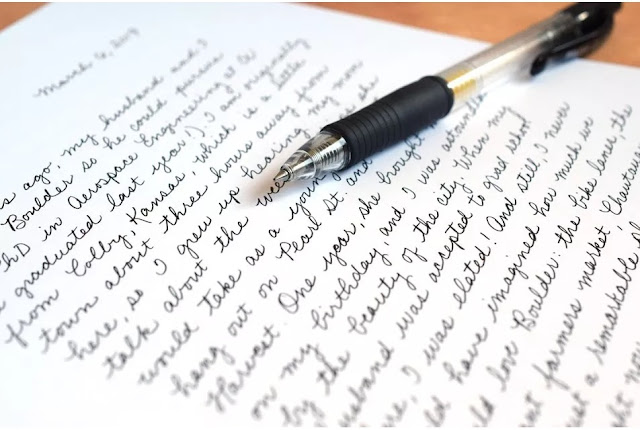 March 6, 2019
s ago, my husband and I
Boulder so he could pursue
PhD in Aerospace Engineering at CU
graduated last year!) I am originally
from Colby, Kansas, which is a little
town about three hours away from
here, so I grew up hearing my mom
talk about the
would take as a young
hang out on Pearl St. and
Harvest One year, she brought
on my birthday, and I was astounded
by the beauty of the city. When my
husband was accepted to grad school
I was elated! And still, I never
have imagined how much we
love Boulder: the bike lanes, the
farmers market, Chautauqua
just a remarkably